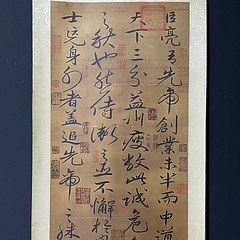 臣亮言先帝創業未半而中道
天下三分益州疲敝此誠危急
之秋也然侍衛之臣不懈於
士忘身外者蓋追先帝之殊